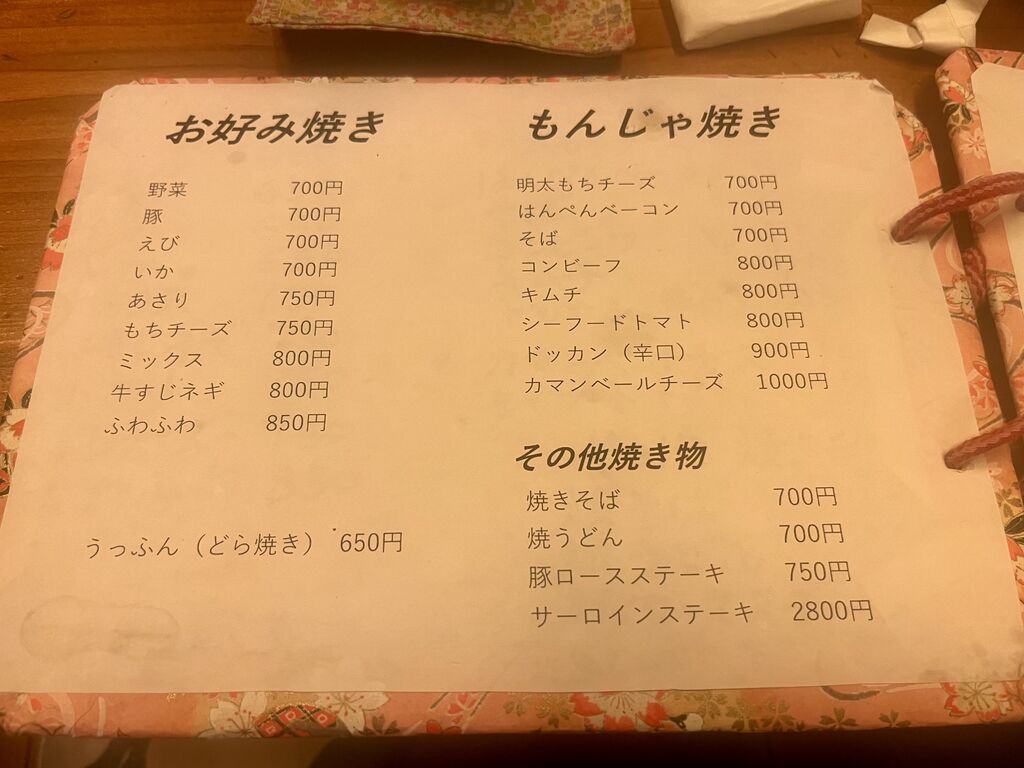 お好み焼き
野菜 700円
豚 700円
えび 700円
いか 700円
あさり 750円
もちチーズ 750円
ミックス 800円
牛すじネギ 800円
ふわふわ 850円
うっふん（どら焼き） 650円
もんじゃ焼き
明太もちチーズ 700円
はんぺんベーコン 700円
そば 700円
コンビーフ 800円
キムチ 800円
シーフードトマト 800円
ドッカン（辛口） 900円
カマンベールチーズ 1000円
その他焼き物
焼きそば 700円
焼うどん 700円
豚ロースステーキ 750円
サーロインステーキ 2800円